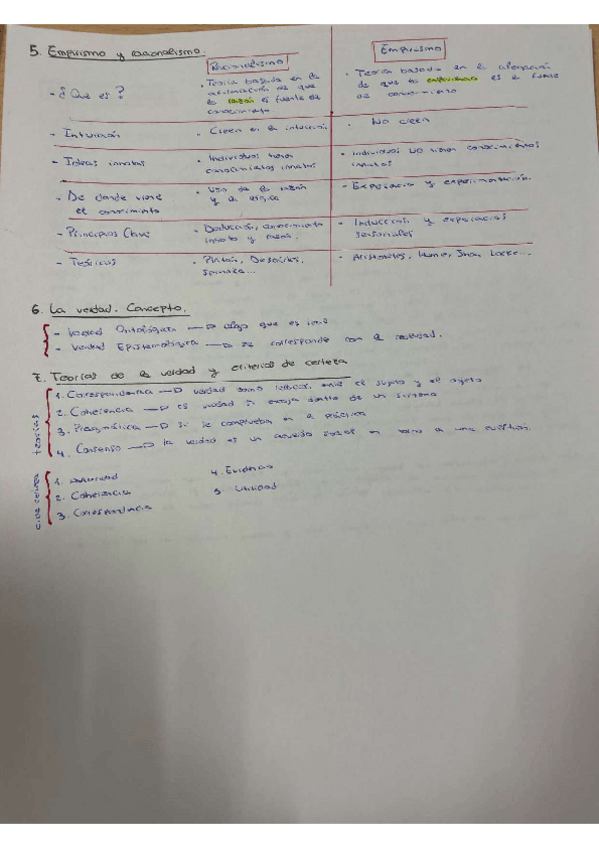 5. Empirismo y racionalismo.
Racionalismo
Empirismo
- ¿Que es?
- Teoría basada en la afirmación de que la razón es fuente de conocimiento
- Teoría basada en la afirmación de que la experiencia es la fuente de conocimiento
- Intuición
- Creen en la intuición
- No creen
- Ideas innatas
- Individuos tienen conocimientos innatos
- Individuos NO tienen conocimientos innatos
- De donde viene el conocimiento
- Uso de la razón y la lógica
- Experiencia y experimentación.
- Principios Clave
- Deducción, conocimiento innato y razón.
- Inducción y experiencias sensoriales
- Teóricos
- Platón, Descartes, Spinoza...
- Aristóteles, Hume, Jhon Locke...
6. La verdad. Concepto.
- Verdad Ontológica → algo que es real
- Verdad Epistemológica → se corresponde con la realidad.
7. Teorías de la verdad y criterios de certeza
teorías
1. Correspondencia → verdad como relación entre el sujeto y el objeto
2. Coherencia → es verdad si encaja dentro de un sistema
3. Pragmática → si se comprueba en la práctica
4. Consenso → la verdad es un acuerdo social en torno a una cuestión.
1. Autoridad
2. Coherencia
3. Correspondencia
4. Evidencia
5. Utilidad